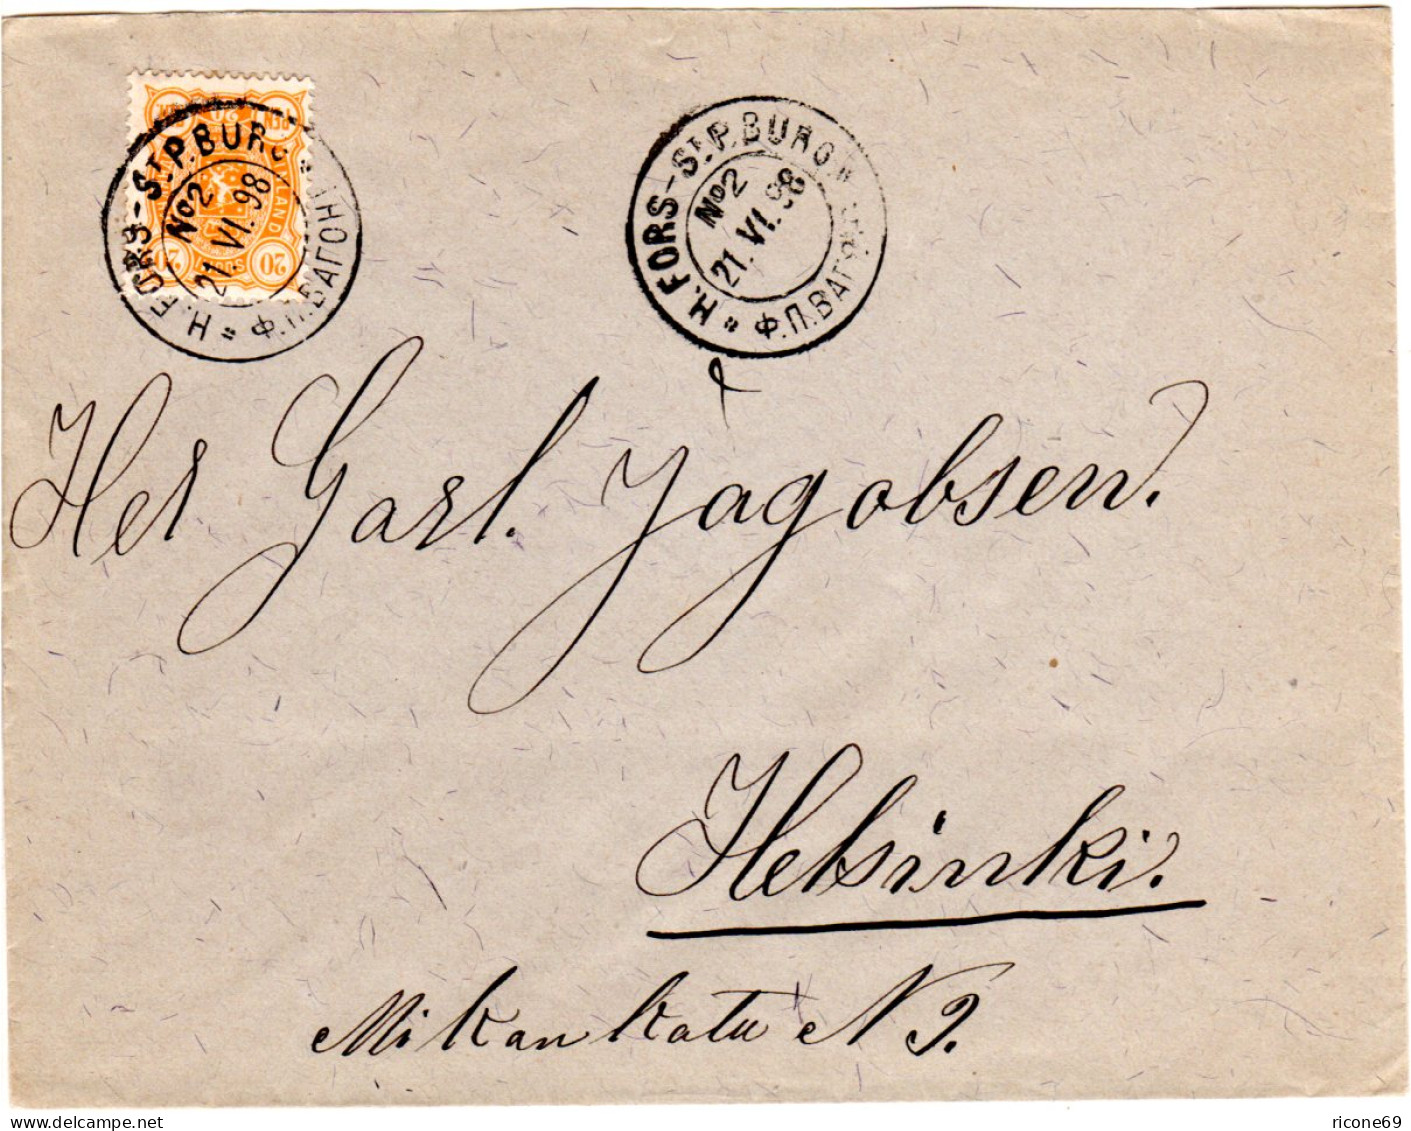 H.FORS-St.P.BURG
№2
21.VI.98
Ф.П.ВАГОНЪ
20
20
H.FORS-St.P.BURG
№2
21.VI.98
Ф.П.ВАГ
Her Garl. Jagobsen.
Helsinki.
Mikankatu N 9.
www.delcampe.net
ricone69